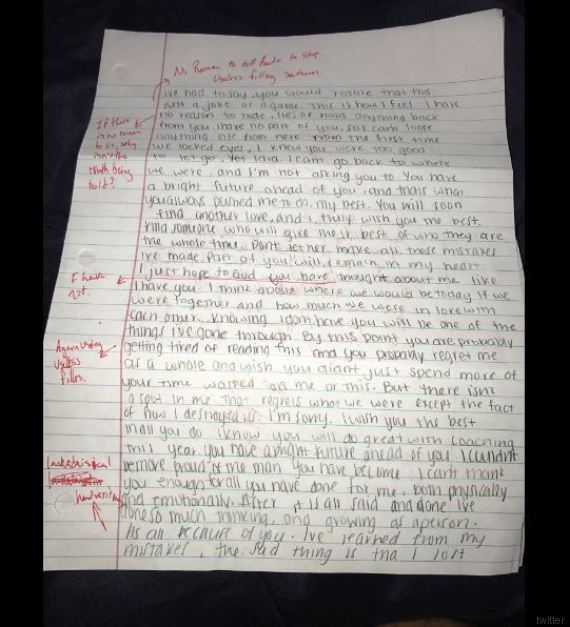 No Reason to
Useless filling sentence.
ive had to say, you would realize that this
isnt a joke or a game. This is how I feel. I have
no reason to hide, lie, or hold anything back
from you. I have no part of you, so I cant loose
anything else from here. From the first time
we locked eyes, I knew you were too good
to let go. Yet I did. I cant go back to where
we were, and I'm not asking you to. You have
a bright future ahead of you, and thats what
you always pushed me to do, my best. You will soon
find another love, and I truly wish you the best.
Find someone who will give the best of who they are
the whole time. Dont let her make all those mistakes
I've made. Part of you will remain in my heart
I just hope to God you have thought about me like
I have you. I think about where we would be today if we
were together and how much we were in love with
each other. Knowing I dont have you will be one of the
things I've gone through. By this point you are probably
getting tired of reading this and you probably regret me
as a whole and wish you didnt just spend more of
your time wasted on me or this. But there isnt
a spot in me that regrets what we were except the fact
of how I destroyed us. I'm sorry. I wish you the best
in all you do. I know you will do great with coaching
this year. You have a bright future ahead of you. I couldn't
be more proud of the man you have become. I cant thank
you enough for all you have done for me, both physically
and emotionally. After it is all said and done Ive
done so much thinking, and growing as a person.
Its all because of you. I've learned from my
mistakes, the sad thing is tha I lost
If there
is no reason
to lie, why
isn't the
truth being
told?
I have
not.
Again using
useless
fillers.
handwriting
twitter